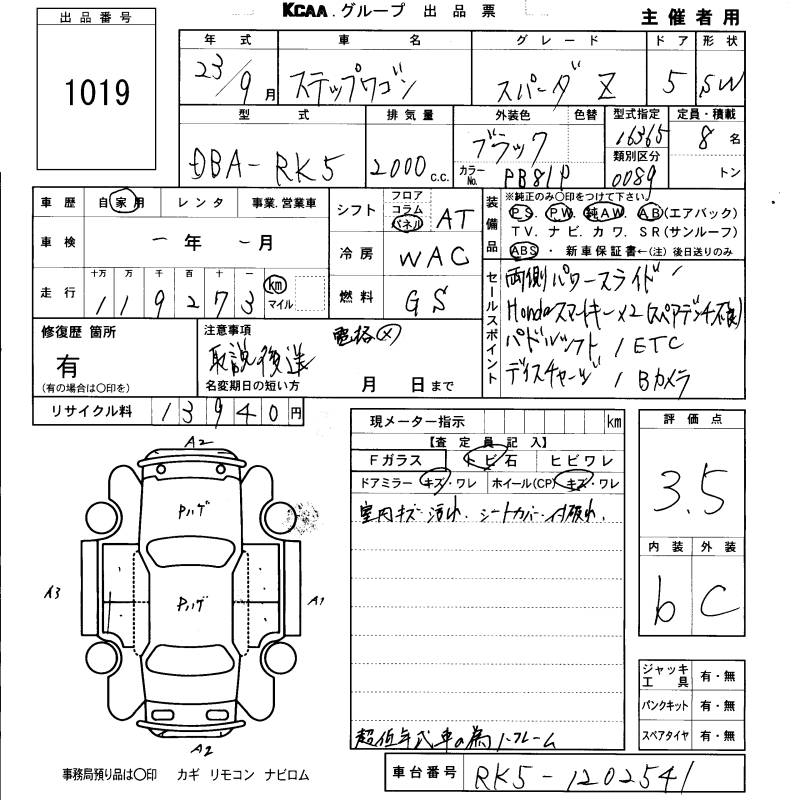 KCAA.グループ 出品票
主催者用
出品番号
1019
年式 車名 グレード ドア 形状
23/9月 ステップワゴン スパーダ Z 5 SW
型式 排気量 外装色 色替 型式指定 定員・積載
DBA-RK5 2000 c.c. ブラック 16365 8名
カラーNo. PB81P 類別区分 0089 トン
車歴 自家用 レンタ 事業.営業車
シフト フロア コラム パネル AT
装備品 ※純正のみ〇印をつけて下さい
PS. PW. 純AW. AB(エアバック)
TV. ナビ. カワ. SR(サンルーフ)
ABS・新車保証書←(注)後日送りのみ
車検 - 年 - 月
冷房 WAC
走行 十万 万 千 百 十 一
119273 km マイル
燃料 GS
セールスポイント
両側パワースライド /
Hondaスマートキー×2(スペアデンチ不良)
パドルシフト / ETC
ディスチャージ / Bカメラ
修復歴 箇所
有
(有の場合は〇印を)
注意事項
電格(×)
取説後送
名変期日の短い方 月 日まで
リサイクル料 13940円
現メーター指示 km
【査定員記入】
Fガラス トビ石 ヒビワレ
ドアミラー キズ・ワレ ホイール(CP) キズ・ワレ
室内キズ・汚れ. シートカバー付破れ.
評価点
3.5
内装 外装
b C
A2
Pハゲ
A3
Pハゲ
A1
A2
ジャッキ工具 有・無
パンクキット 有・無
スペアタイヤ 有・無
超低年式車の為ノークレーム
事務局預り品は〇印 カギ リモコン ナビロム
車台番号 RK5-1202541